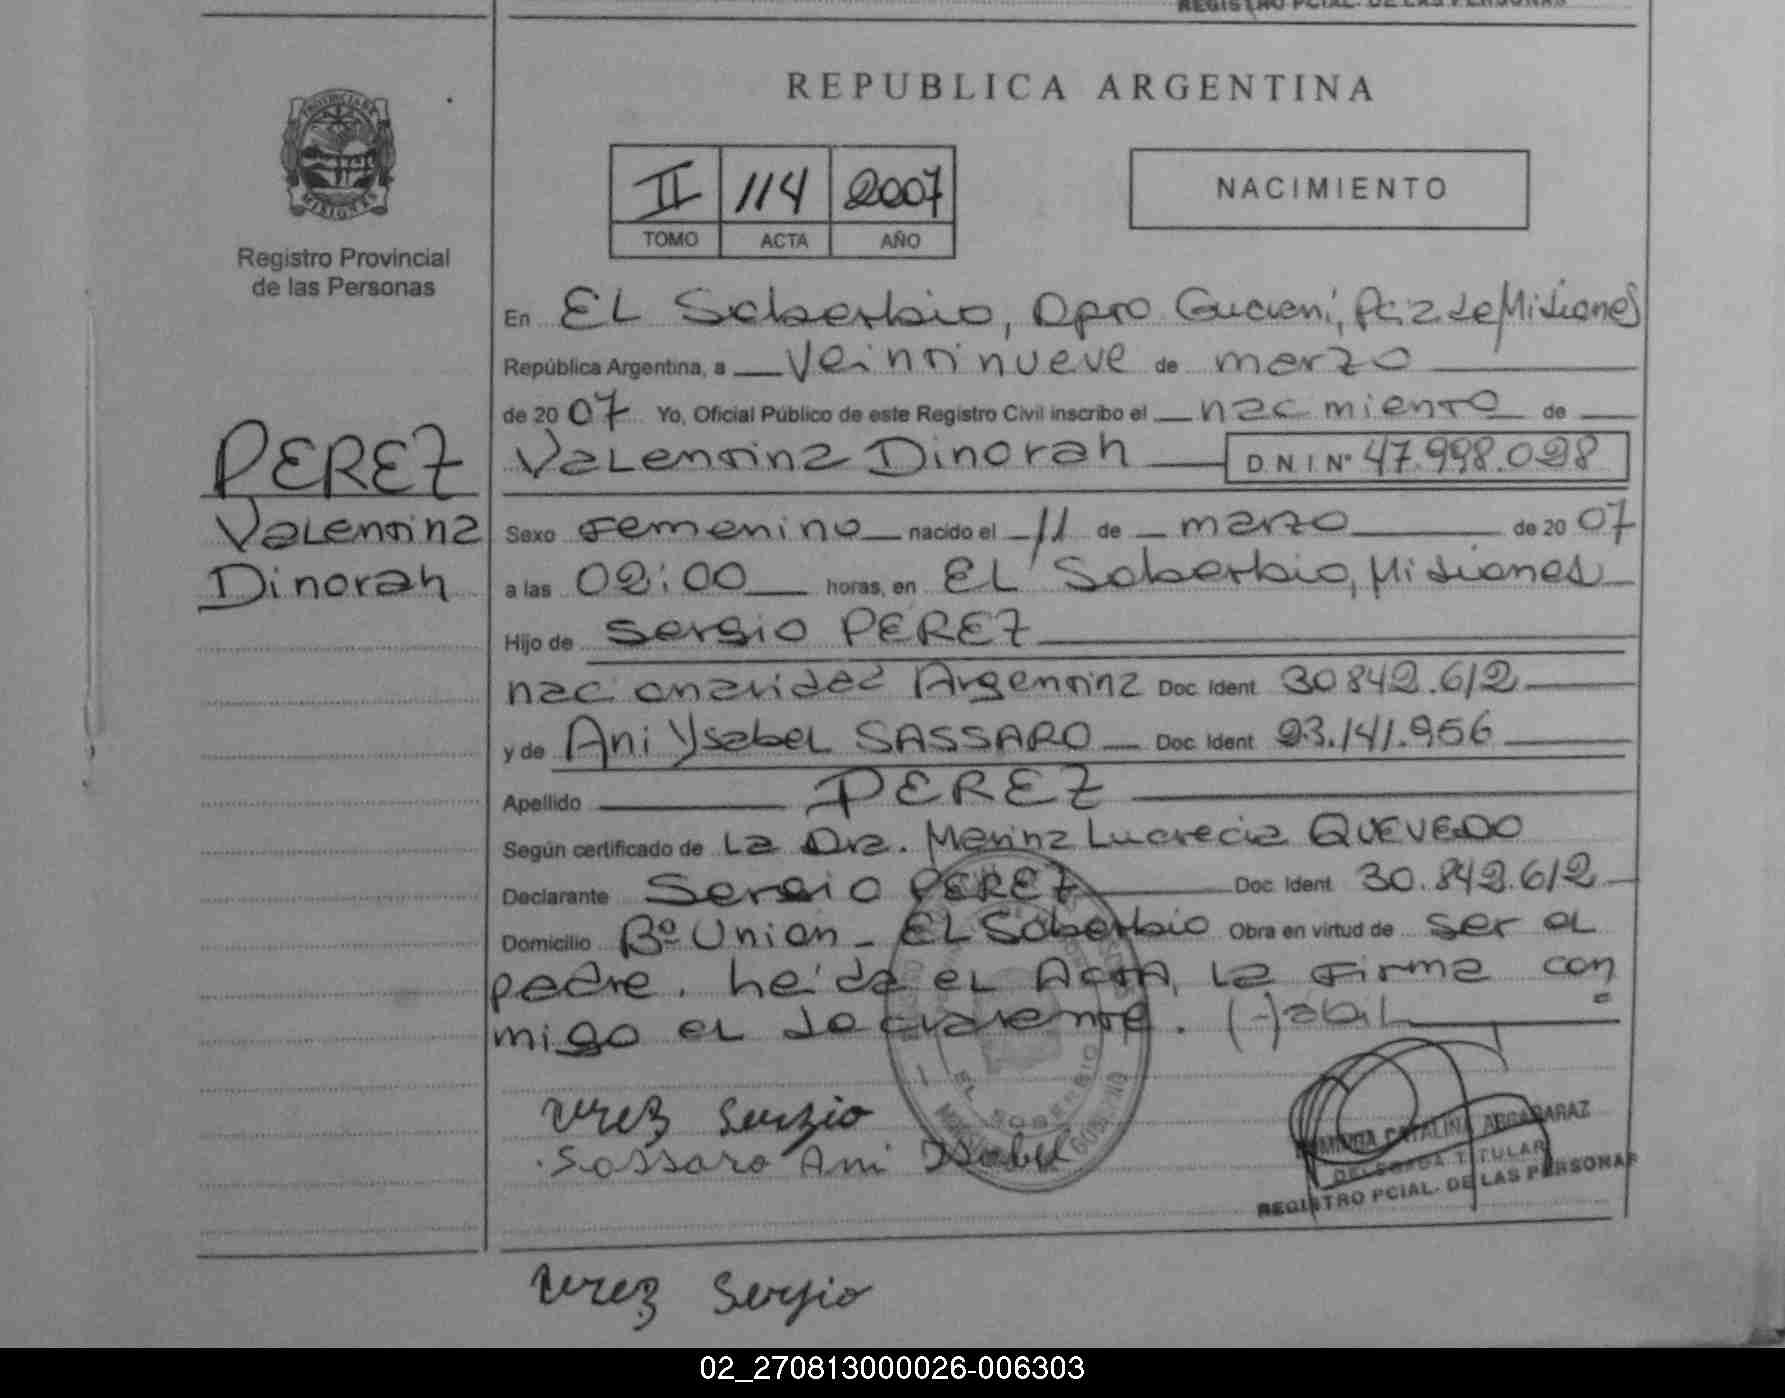 REGISTRO PCIAL. DE LAS PERSONAS
REPUBLICA ARGENTINA
PROVINCIA DE
MISIONES
Registro Provincial
de las Personas
II 114 2007
TOMO ACTA AÑO
NACIMIENTO
En EL Soberbio, Dpto Guarani, Pcia de Misiones
República Argentina, a veintinueve de marzo
de 2007 Yo, Oficial Público de este Registro Civil inscribo el nacimiento de
PEREZ
Valentina
Dinorah
Valentina Dinorah D N I Nº 47.998.028
Sexo Femenino nacido el 11 de marzo de 2007
a las 02:00 horas, en EL Soberbio, Misiones
Hijo de Sergio PEREZ
nacionalidad Argentina Doc. Ident 30842.612
y de Ani Ysabel SASSARO Doc. Ident 93.141.956
Apellido PEREZ
Según certificado de La Dra. Marina Lucrecia QUEVEDO
Declarante Sergio PEREZ Doc. Ident. 30.842.612
Domicilio Bº Union - EL Soberbio Obra en virtud de ser el
padre. Leida el Acta, la firma con
migo el declarante. (-)abil
EL SOBERBIO
Perez Sergio
Sassaro Ani Isabel
CATALINA ARGAÑARAZ
DELEGADA TITULAR
REGISTRO PCIAL. DE LAS PERSONAS
Perez Sergio
02_270813000026-006303